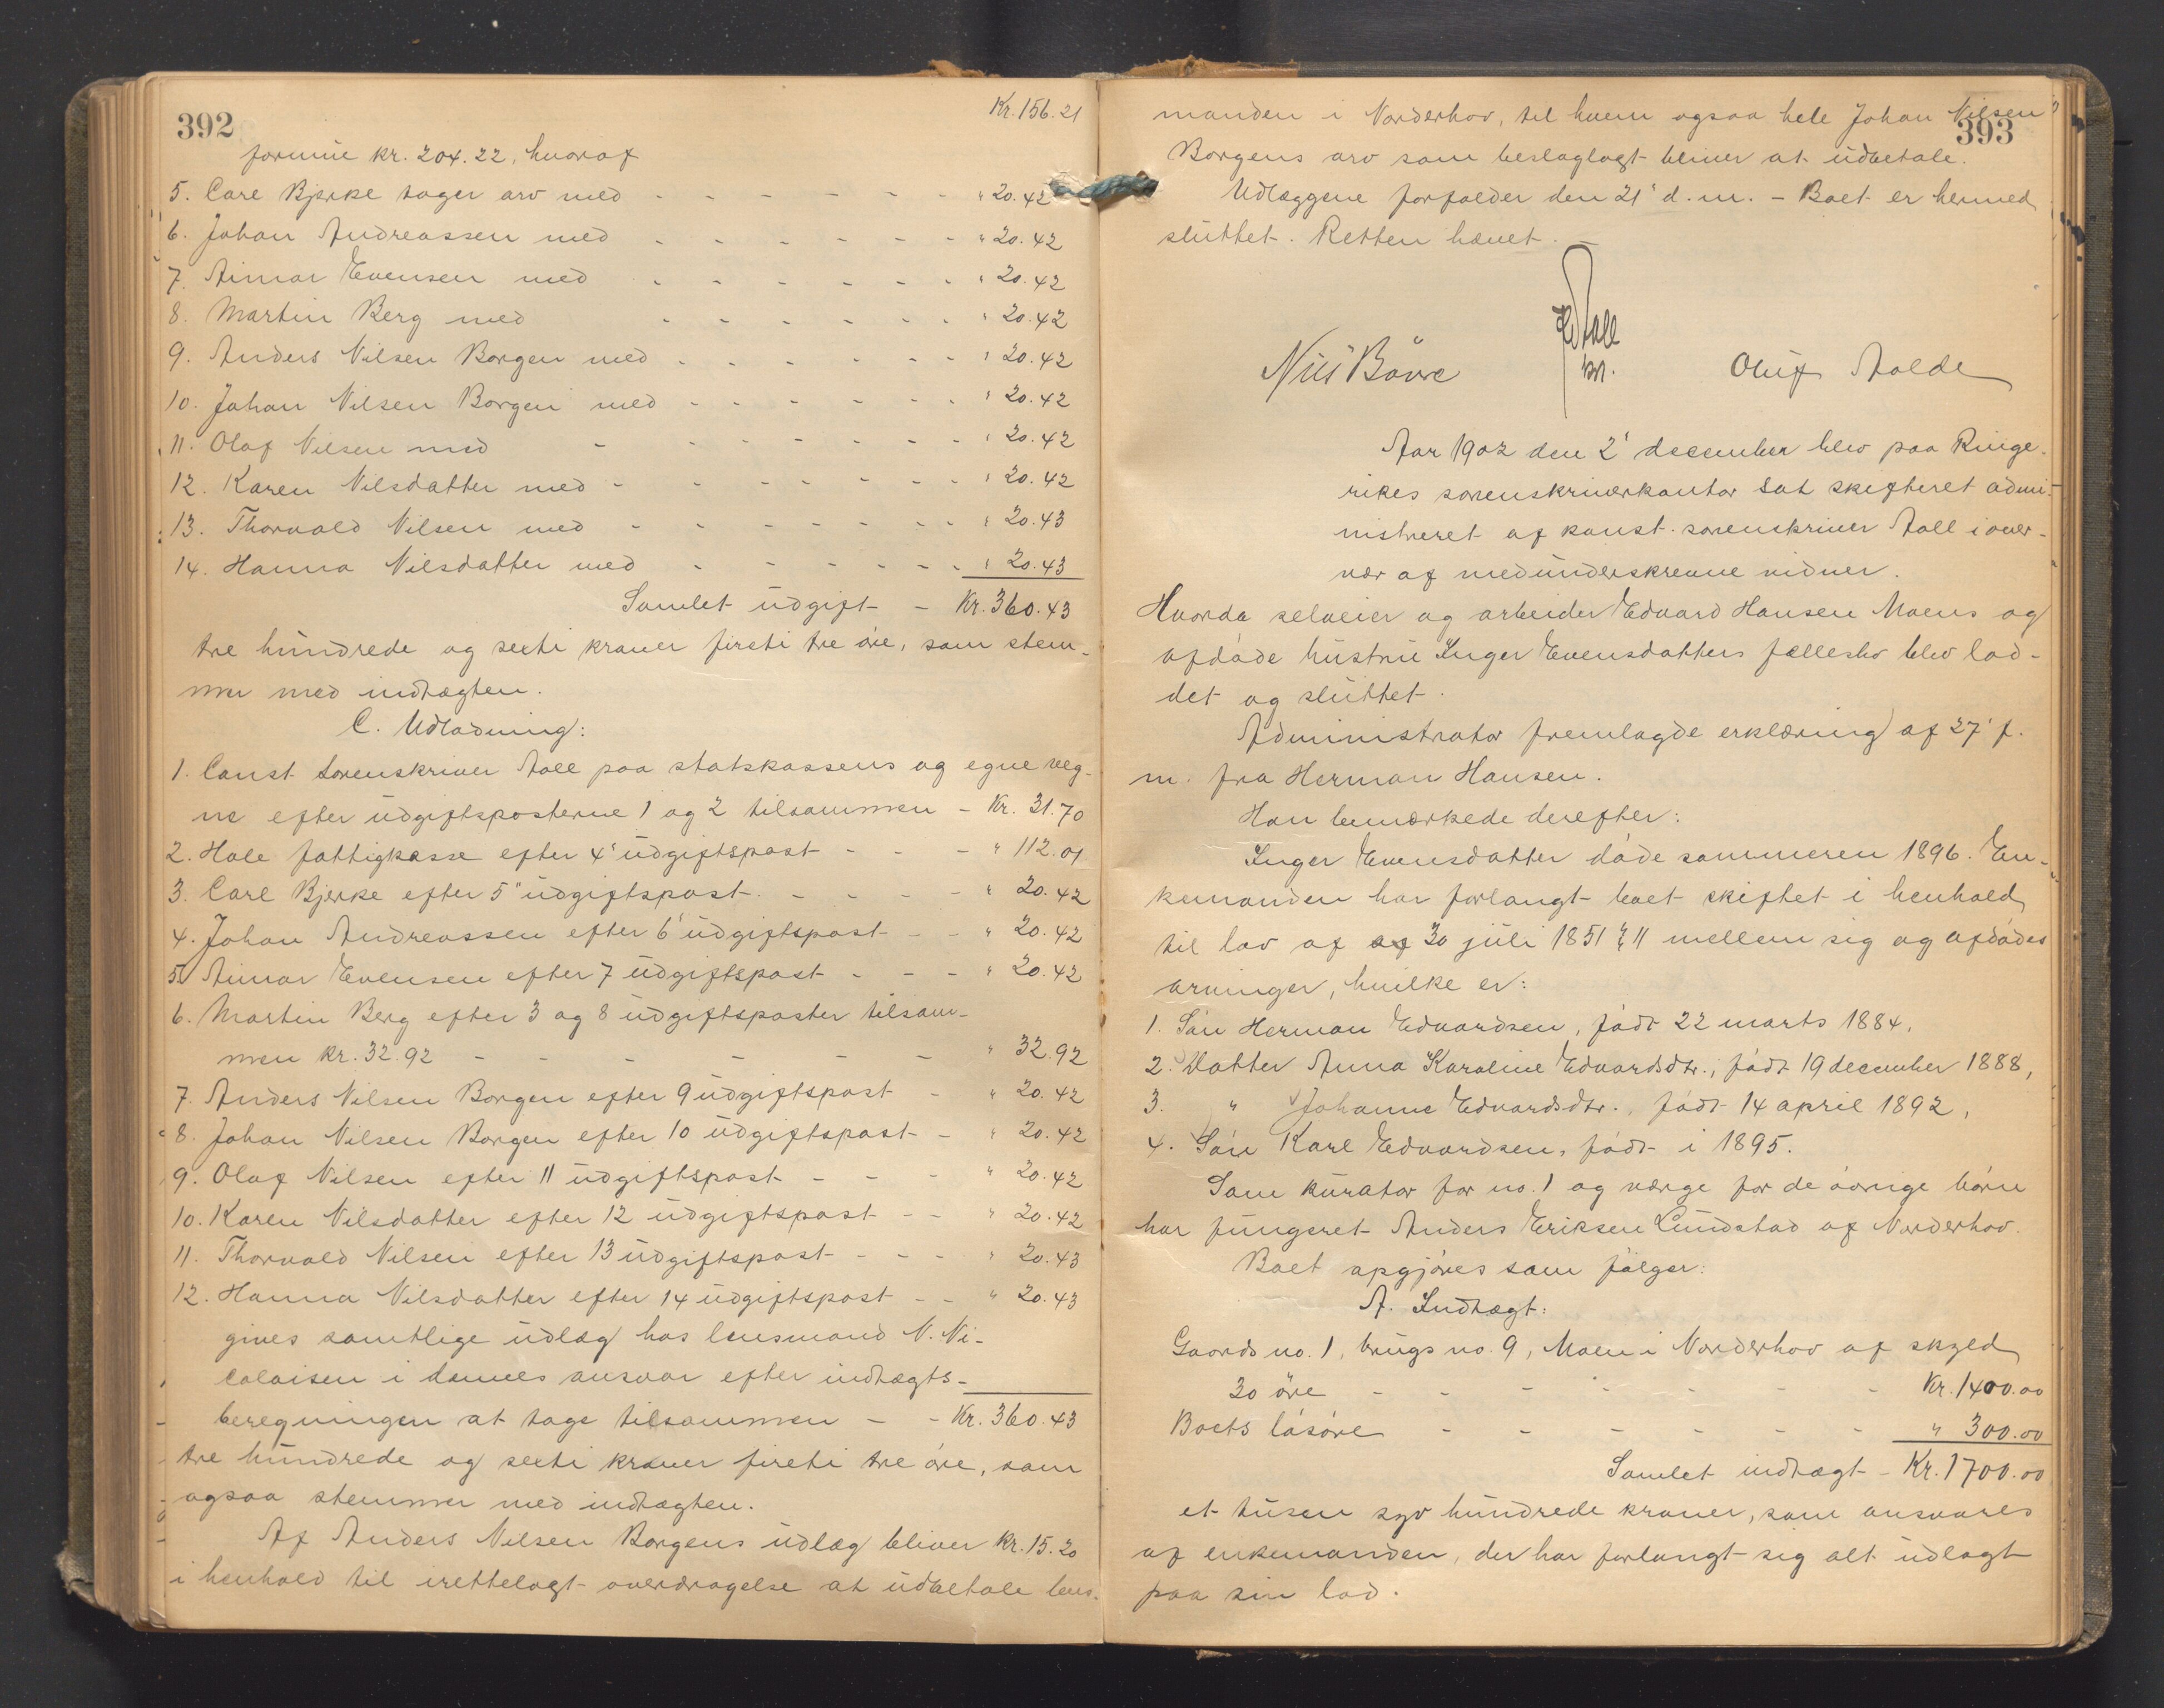 392
Kr. 156.21
formue kr. 204.22, hvoraf
5. Carl Bjerke tager arv med - - - - - - " 20.42
6. Johan Andreassen med - - - - - - " 20.42
7. Aimar Evensen med - - - - - - " 20.42
8. Martin Berg med - - - - - - " 20.42
9. Anders Nilsen Borgen med - - - - - - " 20.42
10. Johan Nilsen Borgen med - - - - - - " 20.42
11. Olaf Nilsen med - - - - - - " 20.42
12. Karen Nilsdatter med - - - - - - - " 20.42
13. Thorvald Nilsen med - - - - - - - " 20.43
14. Hanna Nilsdatter med - - - - - " 20.43
Samlet udgift - Kr. 360.43
tre hundrede og sexti kroner fireti tre øre, som stem-
mer med indtægten.
C. Udlodning:
1. Const. sorenskriver Aall paa statskassens og egne veg-
ne efter udgiftsposterne 1 og 2 tilsammen - Kr. 31.70
2. Hole fattigkasse efter 4' udgiftspost - - - " 112.01
3. Carl Bjerke efter 5" udgiftspost - - - - " 20.42
4. Johan Andreassen efter 6' udgiftspost - - " 20.42
5. Aimar Evensen efter 7 udgiftspost - - - " 20.42
6. Martin Berg efter 3 og 8 udgiftsposter tilsam-
men kr. 32.92 - - - - - - " 32.92
7. Anders Nilsen Borgen efter 9 udgiftspost - " 20.42
8. Johan Nilsen Borgen efter 10 udgiftspost - " 20.42
9. Olaf Nilsen efter 11 udgiftspost - - - " 20.42
10. Karen Nilsdatter efter 12 udgiftspost - - " 20.42
11. Thorvald Nilsen efter 13 udgiftspost - - - " 20.43
12. Hanna Nilsdatter efter 14 udgiftspost - - " 20.43
gives samtlige udlæg hos lensmand N. Ni-
colaisen i dennes ansvar efter indtægts-
beregningen at tage tilsammen - - Kr. 360.43
tre hundrede og sexti kroner fireti tre øre, som
ogsaa stemmer med indtægten.
Af Anders Nilsen Borgens udlæg bliver kr. 15.20
i henhold til irettelagt overdragelse at udbetale lens-
393
manden i Norderhov, til hvem ogsaa hele Johan Nilsen
Borgens arv som beslaglagt bliver at udbetale.
Udlæggene forfalder den 21' d. m. - Boet er hermed
sluttet. Retten hævet. -
Aall
Olaf Aalde
Aar 1902 den 2' december blev paa Ringe-
rikes sorenskriverkontor sat skifteret admi-
nistreret af konst. sorenskriver Aall i over-
vær af medunderskrevne vidner.
Hvorda selveier og arbeider Edvard Hansen Moens og
afdøde hustru Inger Evensdatters fællesbo blev lod-
det og sluttet.
Administrator fremlagde erklæring af 27' f.
m. fra Herman Hansen.
Han bemærkede derefter:
Inger Evensdatter døde sommeren 1896. En-
kemanden har forlangt boet skiftet i henhold
til lov af af 30 juli 1851 § 11 mellem sig og afdødes
arvinger, hvilke er:
1. Søn Herman Edvardsen, født 22 marts 1884,
2. Datter Anna Karoline Edvardsdtr., født 19 december 1888,
3. " Johanne Edvardsdtr., født 14 april 1892,
4. Søn Karl Edvardsen, født i 1895.
Som kurator for no. 1 og værge for de øvrige børn
har fungeret Anders Eriksen Lundstad af Norderhov.
Boet opgjøres som følger:
A. Indtægt:
Gaards no. 1, brugs no. 9, Moen i Norderhov af skyld
30 øre - - - - - - - - Kr. 1400.00
Boets løsøre - - - - - - " 300.00
Samlet indtægt - Kr. 1700.00
et tusen syv hundrede kroner, som ansvares
af enkemanden, der har forlangt sig alt udlagt
paa sin lod.